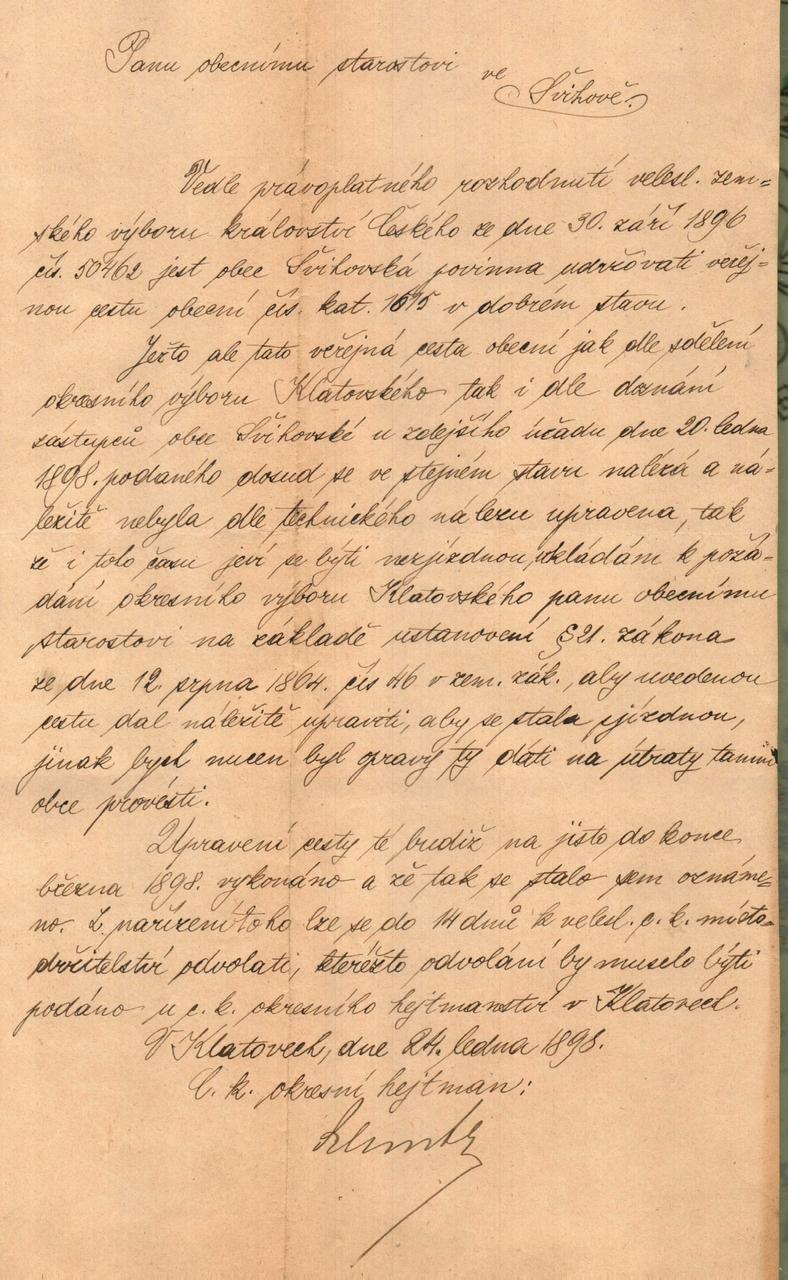 Panu obecnímu starostovi ve
Švihově.
Vedle právoplatného rozhodnutí velesl. zem=
ského výboru království Českého ze dne 30. září 1896
čís. 50462 jest obec Švihovská povinna udržovati veřej=
nou cestu obecní čís. kat. 1615 v dobrém stavu.
Ježto ale tato veřejná cesta obecní jak dle sdělení
okresního výboru Klatovského tak i dle doznání
zástupců obce Švihovské u zdejšího úřadu dne 20. ledna
1898. podaného dosud se ve stejném stavu nalézá a ná=
ležitě nebyla dle technického nálezu upravena, tak
že i toho času jeví se býti nesjízdnou, ukládám k požá=
dání okresního výboru Klatovského panu obecnímu
starostovi na základě ustanovení §21. zákona
ze dne 12. srpna 1864. čís 46 v zem. zák., aby uvedenou
cestu dal náležitě upraviti, aby se stala sjízdnou,
jinak bych nucen byl opravy ty dáti na útraty tamní
obce provésti.
Upravení cesty té budiž na jisto do konce
března 1898. vykonáno a že tak se stalo sem oznáme=
no. Z nařízení toho lze se do 14 dnů k velesl. c. k. místo=
držitelství odvolati, kteréžto odvolání by muselo býti
podáno u c. k. okresního hejtmanství v Klatovech.
V Klatovech, dne 24. ledna 1898.
C. k. okresní hejtman: